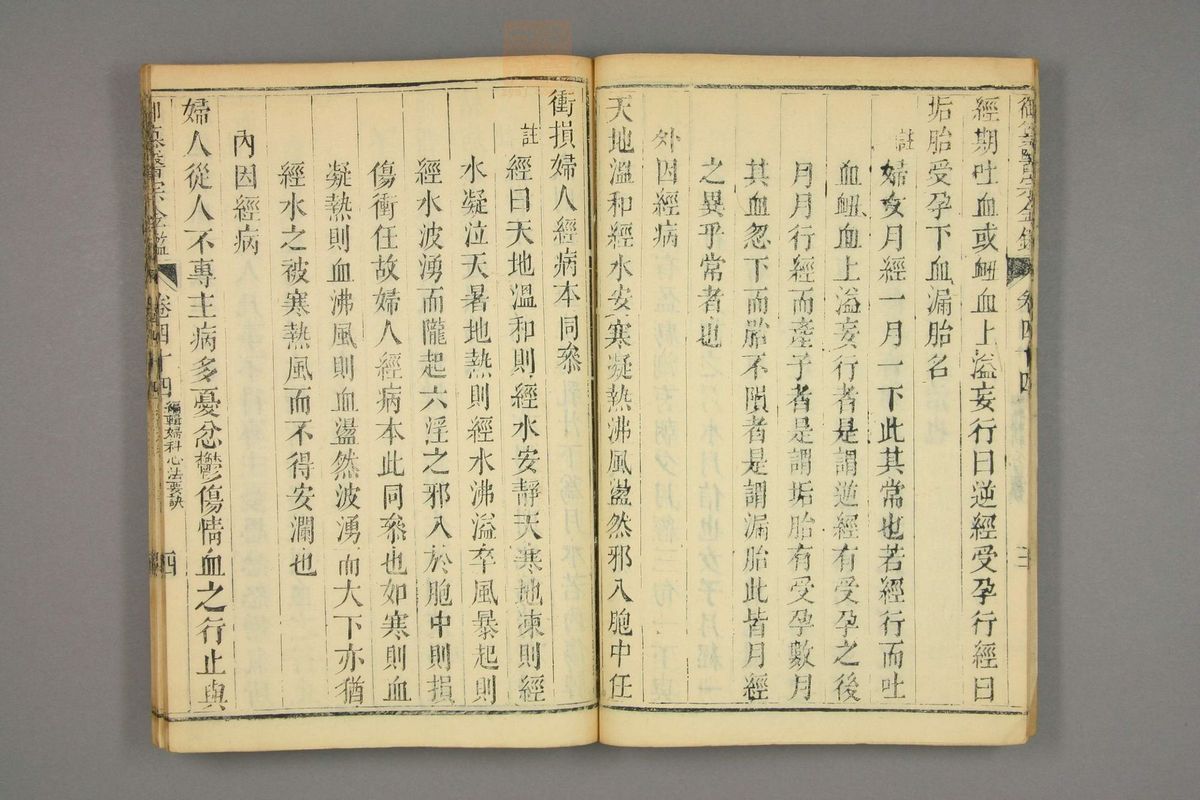 御纂醫宗金鑑 卷四十四 三
經期吐血或衄血上溢妄行曰逆經受孕行經曰
垢胎受孕下血漏胎名
註 婦女月經一月一下此其常也若經行而吐
血衄血上溢妄行者是謂逆經有受孕之後
月月行經而產子者是謂垢胎有受孕數月
其血忽下而胎不隕者是謂漏胎此皆月經
之異乎常者也
外因經病
天地溫和經水安寒凝熱沸風蕩然邪入胞中任
衝損婦人經病本同參
註 經曰天地溫和則經水安靜天寒地凍則經
水凝泣天暑地熱則經水沸溢卒風暴起則
經水波湧而隴起六淫之邪入於胞中則損
傷衝任故婦人經病本此同參也如寒則血
凝熱則血沸風則血盪然波湧而大下亦猶
經水之被寒熱風而不得安瀾也
內因經病
婦人從人不專主病多憂忿鬱傷情血之行止與
御纂醫宗金鑑 卷四十四 編輯婦科心法要訣 四